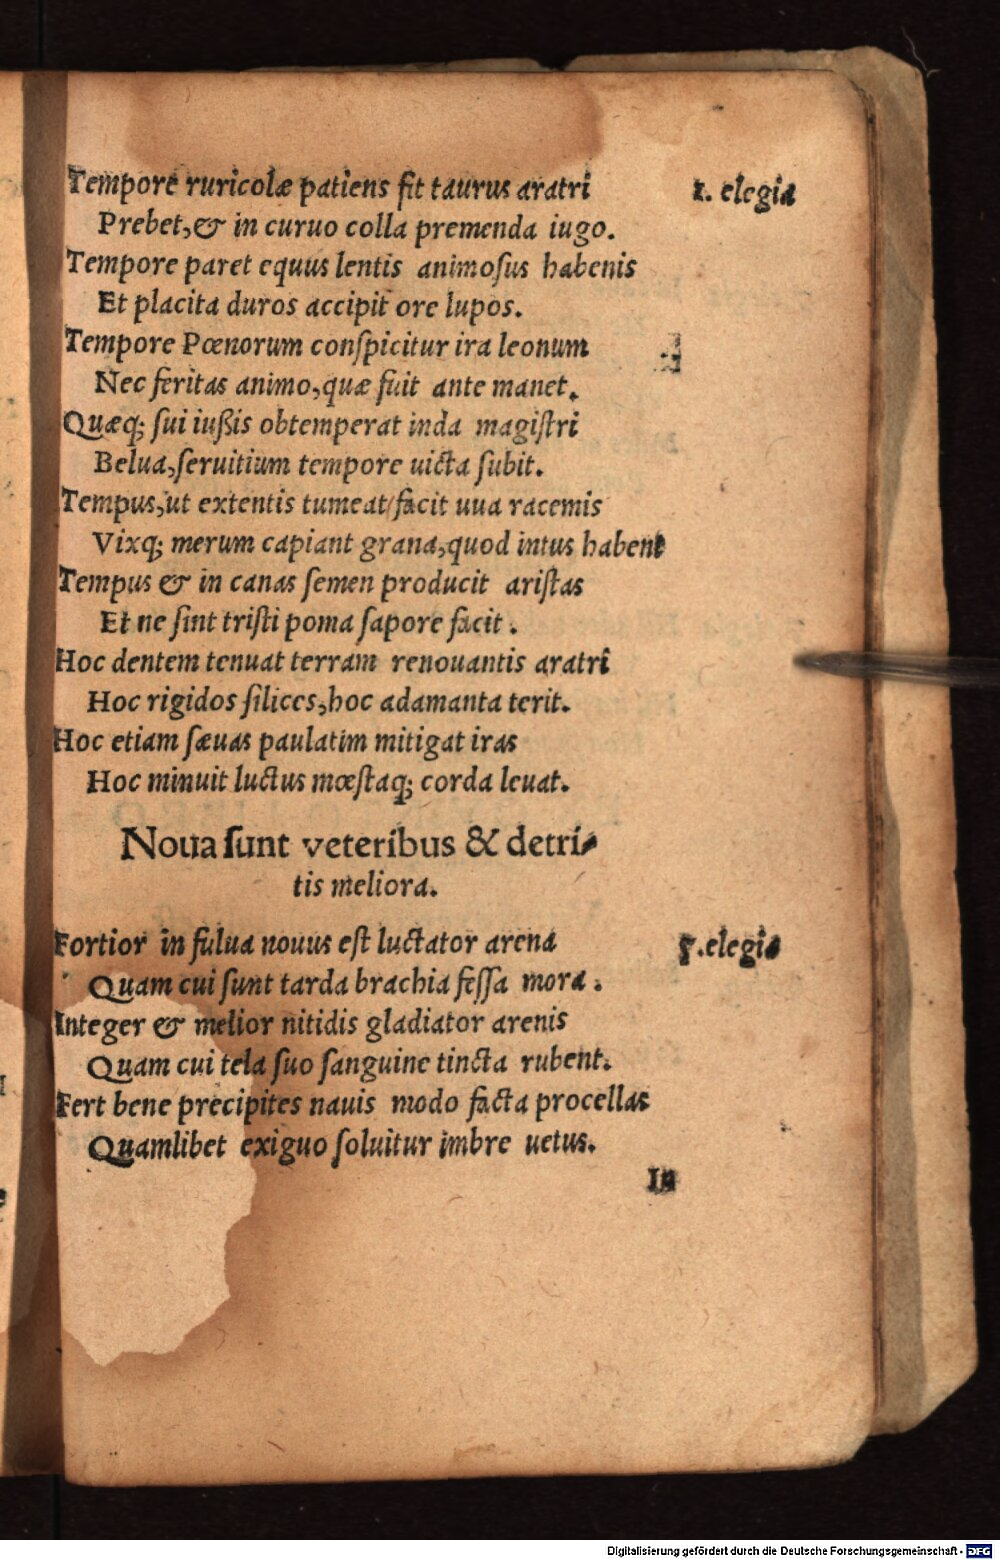 Tempore ruricolæ patiens fit taurus aratri
1. elegia
Prebet, & in curuo colla premenda iugo.
Tempore paret equus lentis animoſus habenis
Et placita duros accipit ore lupos.
Tempore Pœnorum conſpicitur ira leonum
Nec feritas animo, quæ fuit ante manet.
Quæq; ſui iußis obtemperat inda magiſtri
Belua, ſeruitium tempore uicta ſubit.
Tempus, ut extentis tumeat/facit uua racemis
Vixq; merum capiant grana, quod intus habent
Tempus & in canas ſemen producit ariſtas
Et ne ſint triſti poma ſapore facit.
Hoc dentem tenuat terram renouantis aratri
Hoc rigidos ſilices, hoc adamanta terit.
Hoc etiam ſæuas paulatim mitigat iras
Hoc minuit luctus mœſtaq; corda leuat.
Noua ſunt veteribus & detri-
tis meliora.
Fortior in fulua nouus eſt luctator arena
5. elegia
Quam cui ſunt tarda brachia feſſa mora.
Integer & melior nitidis gladiator arenis
Quam cui tela ſuo ſanguine tincta rubent.
Fert bene precipites nauis modo facta procellas
Quamlibet exiguo ſoluitur imbre uetus.
In
Digitalisierung gefördert durch die Deutsche Forschungsgemeinschaft - DFG